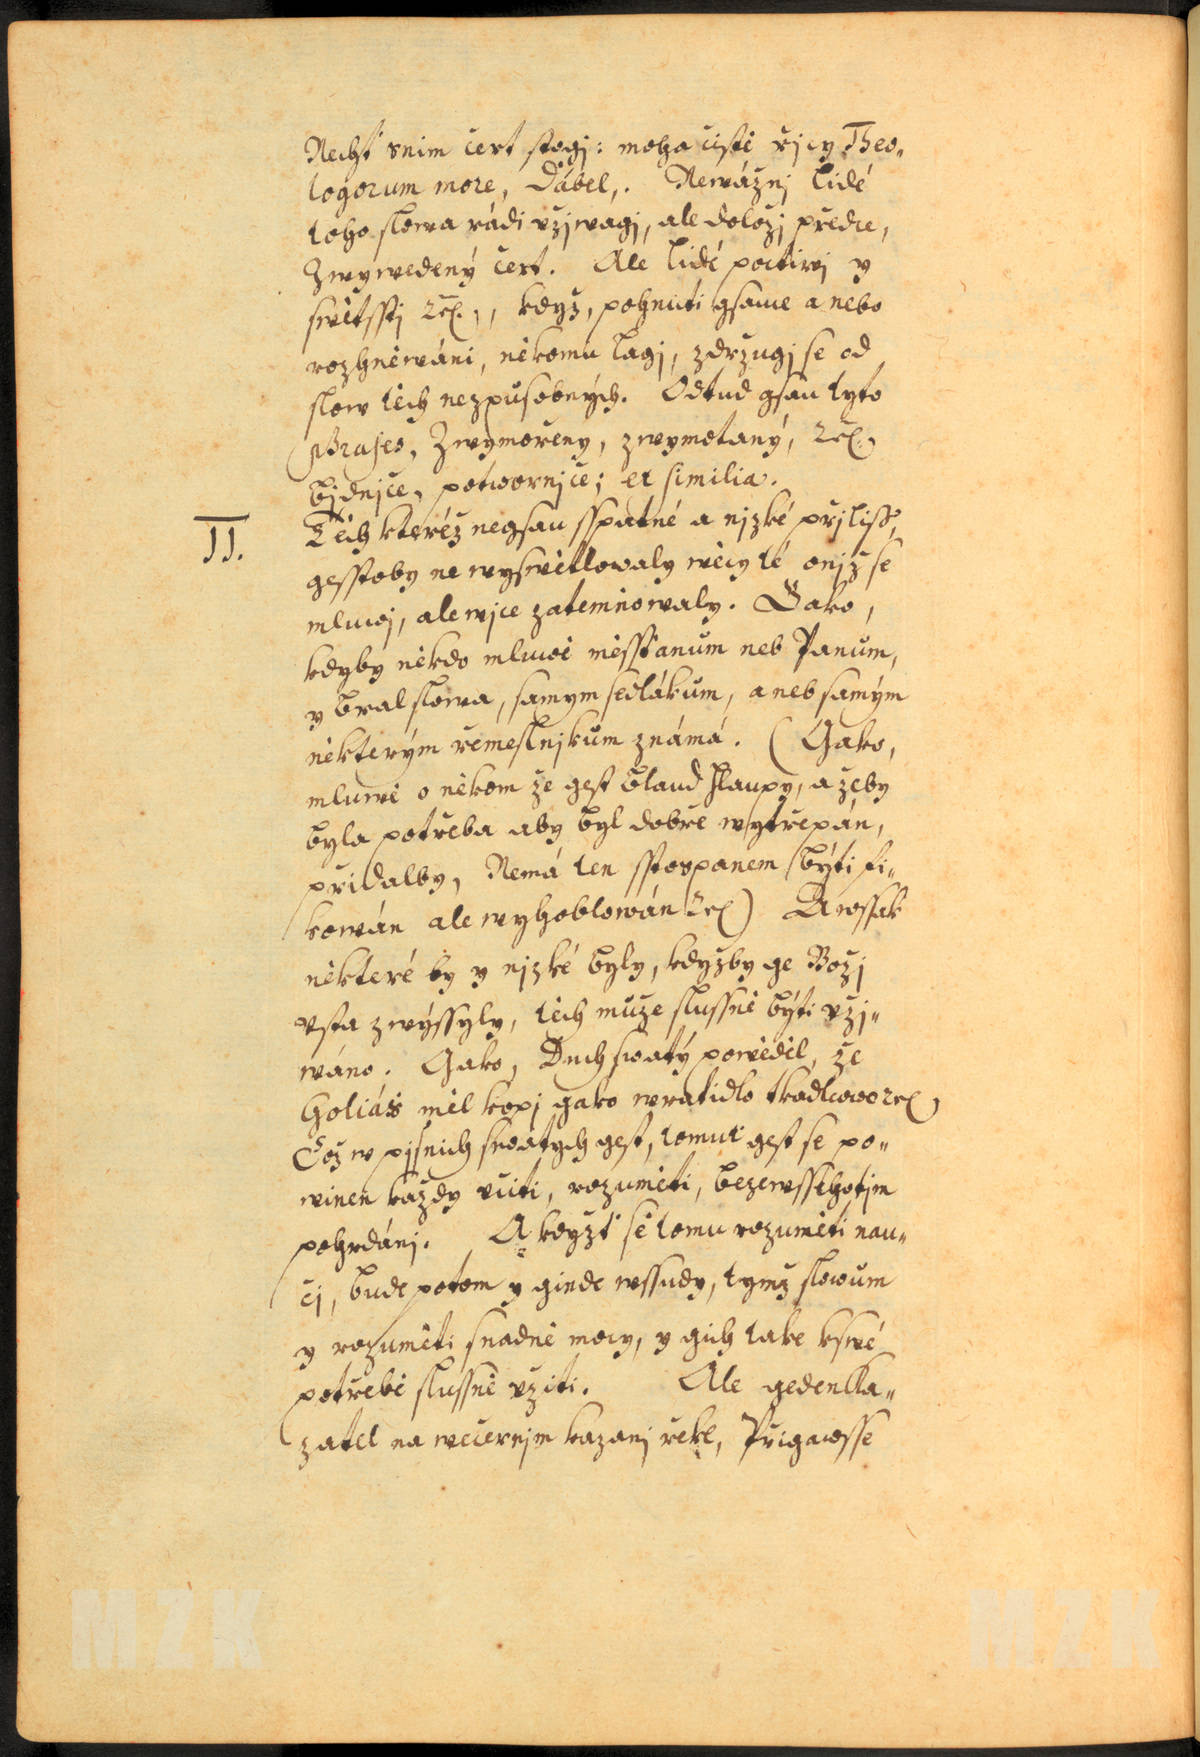 Nechť s nim čert stogj: moha čistě řjcy Theo„
logorum more, Dábel,. Newážnj lidé
toho slowa rádi vžjwagj, ale doložj předce,
Zwywedený čert. Ale lidé poctiwj y
swětssj ⁊c̃.,, když, pohnuti gsauce a nebo
rozhněwáni, někomu lagj, zdržugj se od
slow těch nezpůsobných. Odtud gsau tyto
Zwymořeny, zwymotaný, ⁊c̃.
bjdnjce, potwornjce; et similia.
II. Těch kteréž negsau sspatné a njzké přjliss,
gesstoby ne wyswětlowaly wěcy té o njž se
mluwj, ale wjce zatemňowaly. Gako,
kdyby někdo mluwě měssťanům neb Panům,
y bral slowa, samym sedlákům, a neb samým
některým řemeslnjkům známá. (Gako,
mluwě o někom že gest blaud hlaupy, a žeby
byla potřeba aby byl dobře wytřepán,
přidalby, Nemá ten sstospanem býti fi„
kowán ale wyhoblowán ⁊c̃) A wssak
některé by y njzké byly, kdyžby ge Božj
vsta zwýssyly, těch může slussně býti vžj„
wáno. Gako, Duch swatý powěděl, že
Goliáš měl kopj gako wratidlo tkadlcowo ⁊c̃,
Což w pjsmich swatych gest, tomuť gest se po„
winen každy včiti, rozuměti, bezewsseho tjm
pohrdánj. A kdyžť se tomu rozuměti nau„
čj, bude potom y ginde wssudy, tymž slowům
y rozuměti snadně mocy, y gich také k swé
potřebě slussně vžiti. Ale geden Ka„
zatel na wečernjm kazanj řekl, Přigawsse